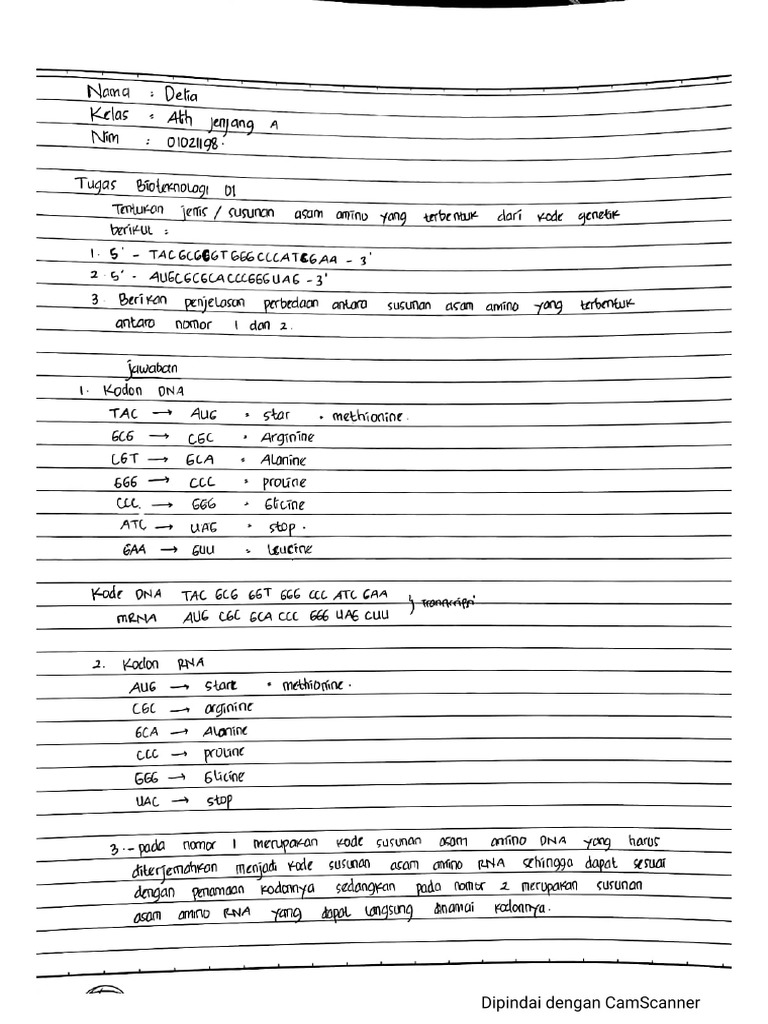 Nama : Delia
Kelas : Ath jenjang A
Nim : 01021198.
Tugas Bioteknologi 01
Tentukan jenis / susunan asam amino yang terbentuk dari kode genetik
berikut :
1. 5' - TACGCGCGTGGGCCCATCGAA - 3'
2. 5' - AUGCGCGCACCCGGGUAG - 3'
3. Berikan penjelasan perbedaan antara susunan asam amino yang terbentuk
antara nomor 1 dan 2.
jawaban
1. Kodon DNA
TAC → AUG = star . methionine.
GCG → CGC = Arginine
CGT → GCA = Alanine
GGG → CCC = proline
CCC. → GGG = Glicine
ATC → UAG = stop.
GAA → GUU = Leucine
Kode DNA TAC GCG GGT GGG CCC ATC GAA
mRNA AUG CGC GCA CCC GGG UAG CUU
2. Kodon RNA
AUG → start = methionine.
CGC → arginine
GCA → Alanine
CCC → proline
GGG → Glicine
UAC → stop
3. - pada nomor 1 merupakan kode susunan asam amino DNA yang harus
diterjemahkan menjadi kode susunan asam amino RNA sehingga dapat sesuai
dengan penamaan kodonnya sedangkan pada nomor 2 merupakan susunan
asam amino RNA yang dapat langsung dinamai kodonnya.
Dipindai dengan CamScanner